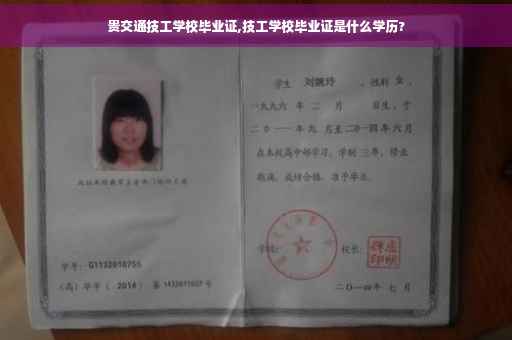 贵交通技工学校毕业证,技工学校毕业证是什么学历?
学生 刘婉玲 ，性别 女 ，
一九九六 年 二 月 日生，于
二〇一一年九 月至二〇一四年六月
在本校高中部学习，学制 三年，修业
期满，成绩合格，准予毕业。
学校： 校长：
学号： G1132010755
（高）毕字（ 2014 ）第 1432011027 号
二〇一四年 七 月